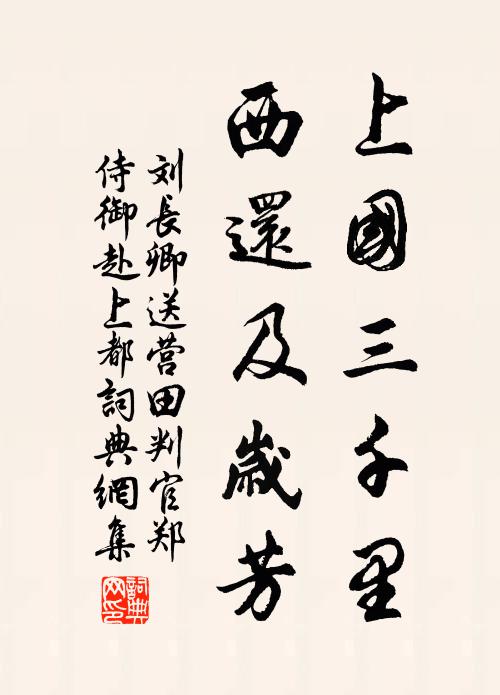 上國三千里
西還及歲芳
刘長卿送营田判官郑
侍御赴上都詞典網集
詞典网印